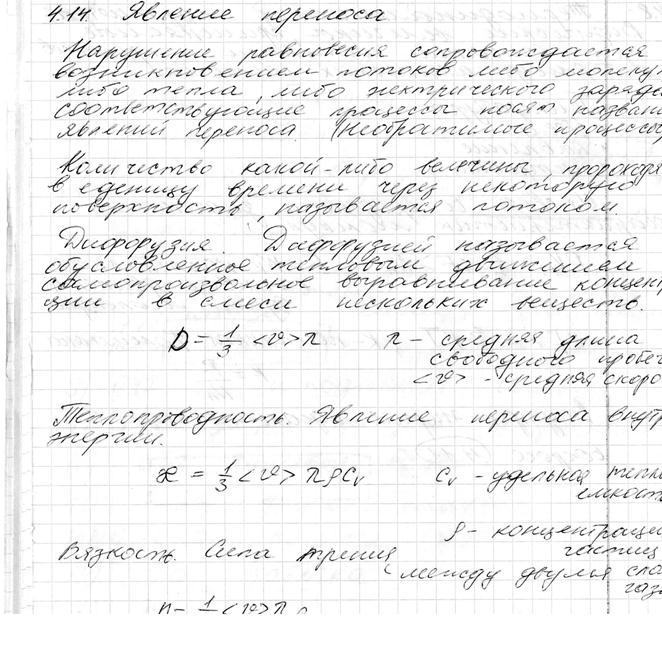 4.14. Явление переноса
Нарушение равновесия сопровождается
возникновением потоков либо молеку
либо тепла, либо электрического заряда
соответствующие процессы носят назван
явлений переноса. (Необратимые процессы
Количество какой-либо величины, проходя
в еденицу времени через некоторую
поверхность, называется потоком.
Диффузия. Диффузией называется
обусловленное тепловым движением
самопроизвольное выравнивание концент
ции в смеси нескольких веществ.
D = 1/3 <v> λ λ - средняя длина
свободного пробег
<v> - средняя скоро
Теплопроводность. Явление переноса внутр
энергии.
æ = 1/3 <v> λ ρ cᵥ cᵥ - удельная тепло
емкость
ρ - концентраци
частиц
Вязкость. Сила трения
между двумя сло
газ
η = 1/3 <v> λ ρ